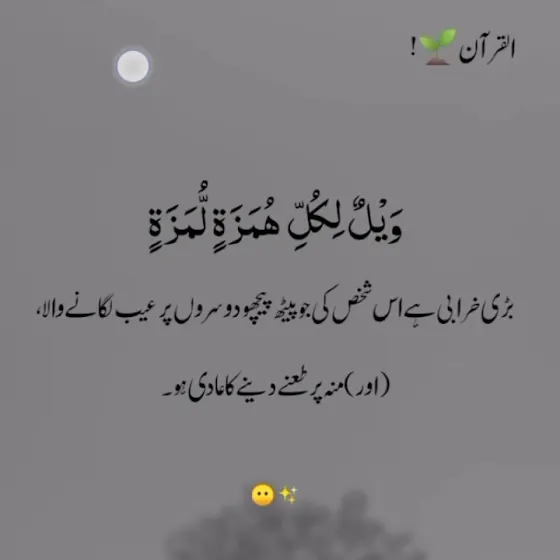 القرآن 🌱 !
وَيْلٌ لِكُلِّ هُمَزَةٍ لُّمَزَةٍ
بڑی خرابی ہے اس شخص کی جو پیٹھ پیچھے دوسروں پر عیب لگانے والا،
(اور) منہ پر طعنے دینے کا عادی ہو۔
😶✨